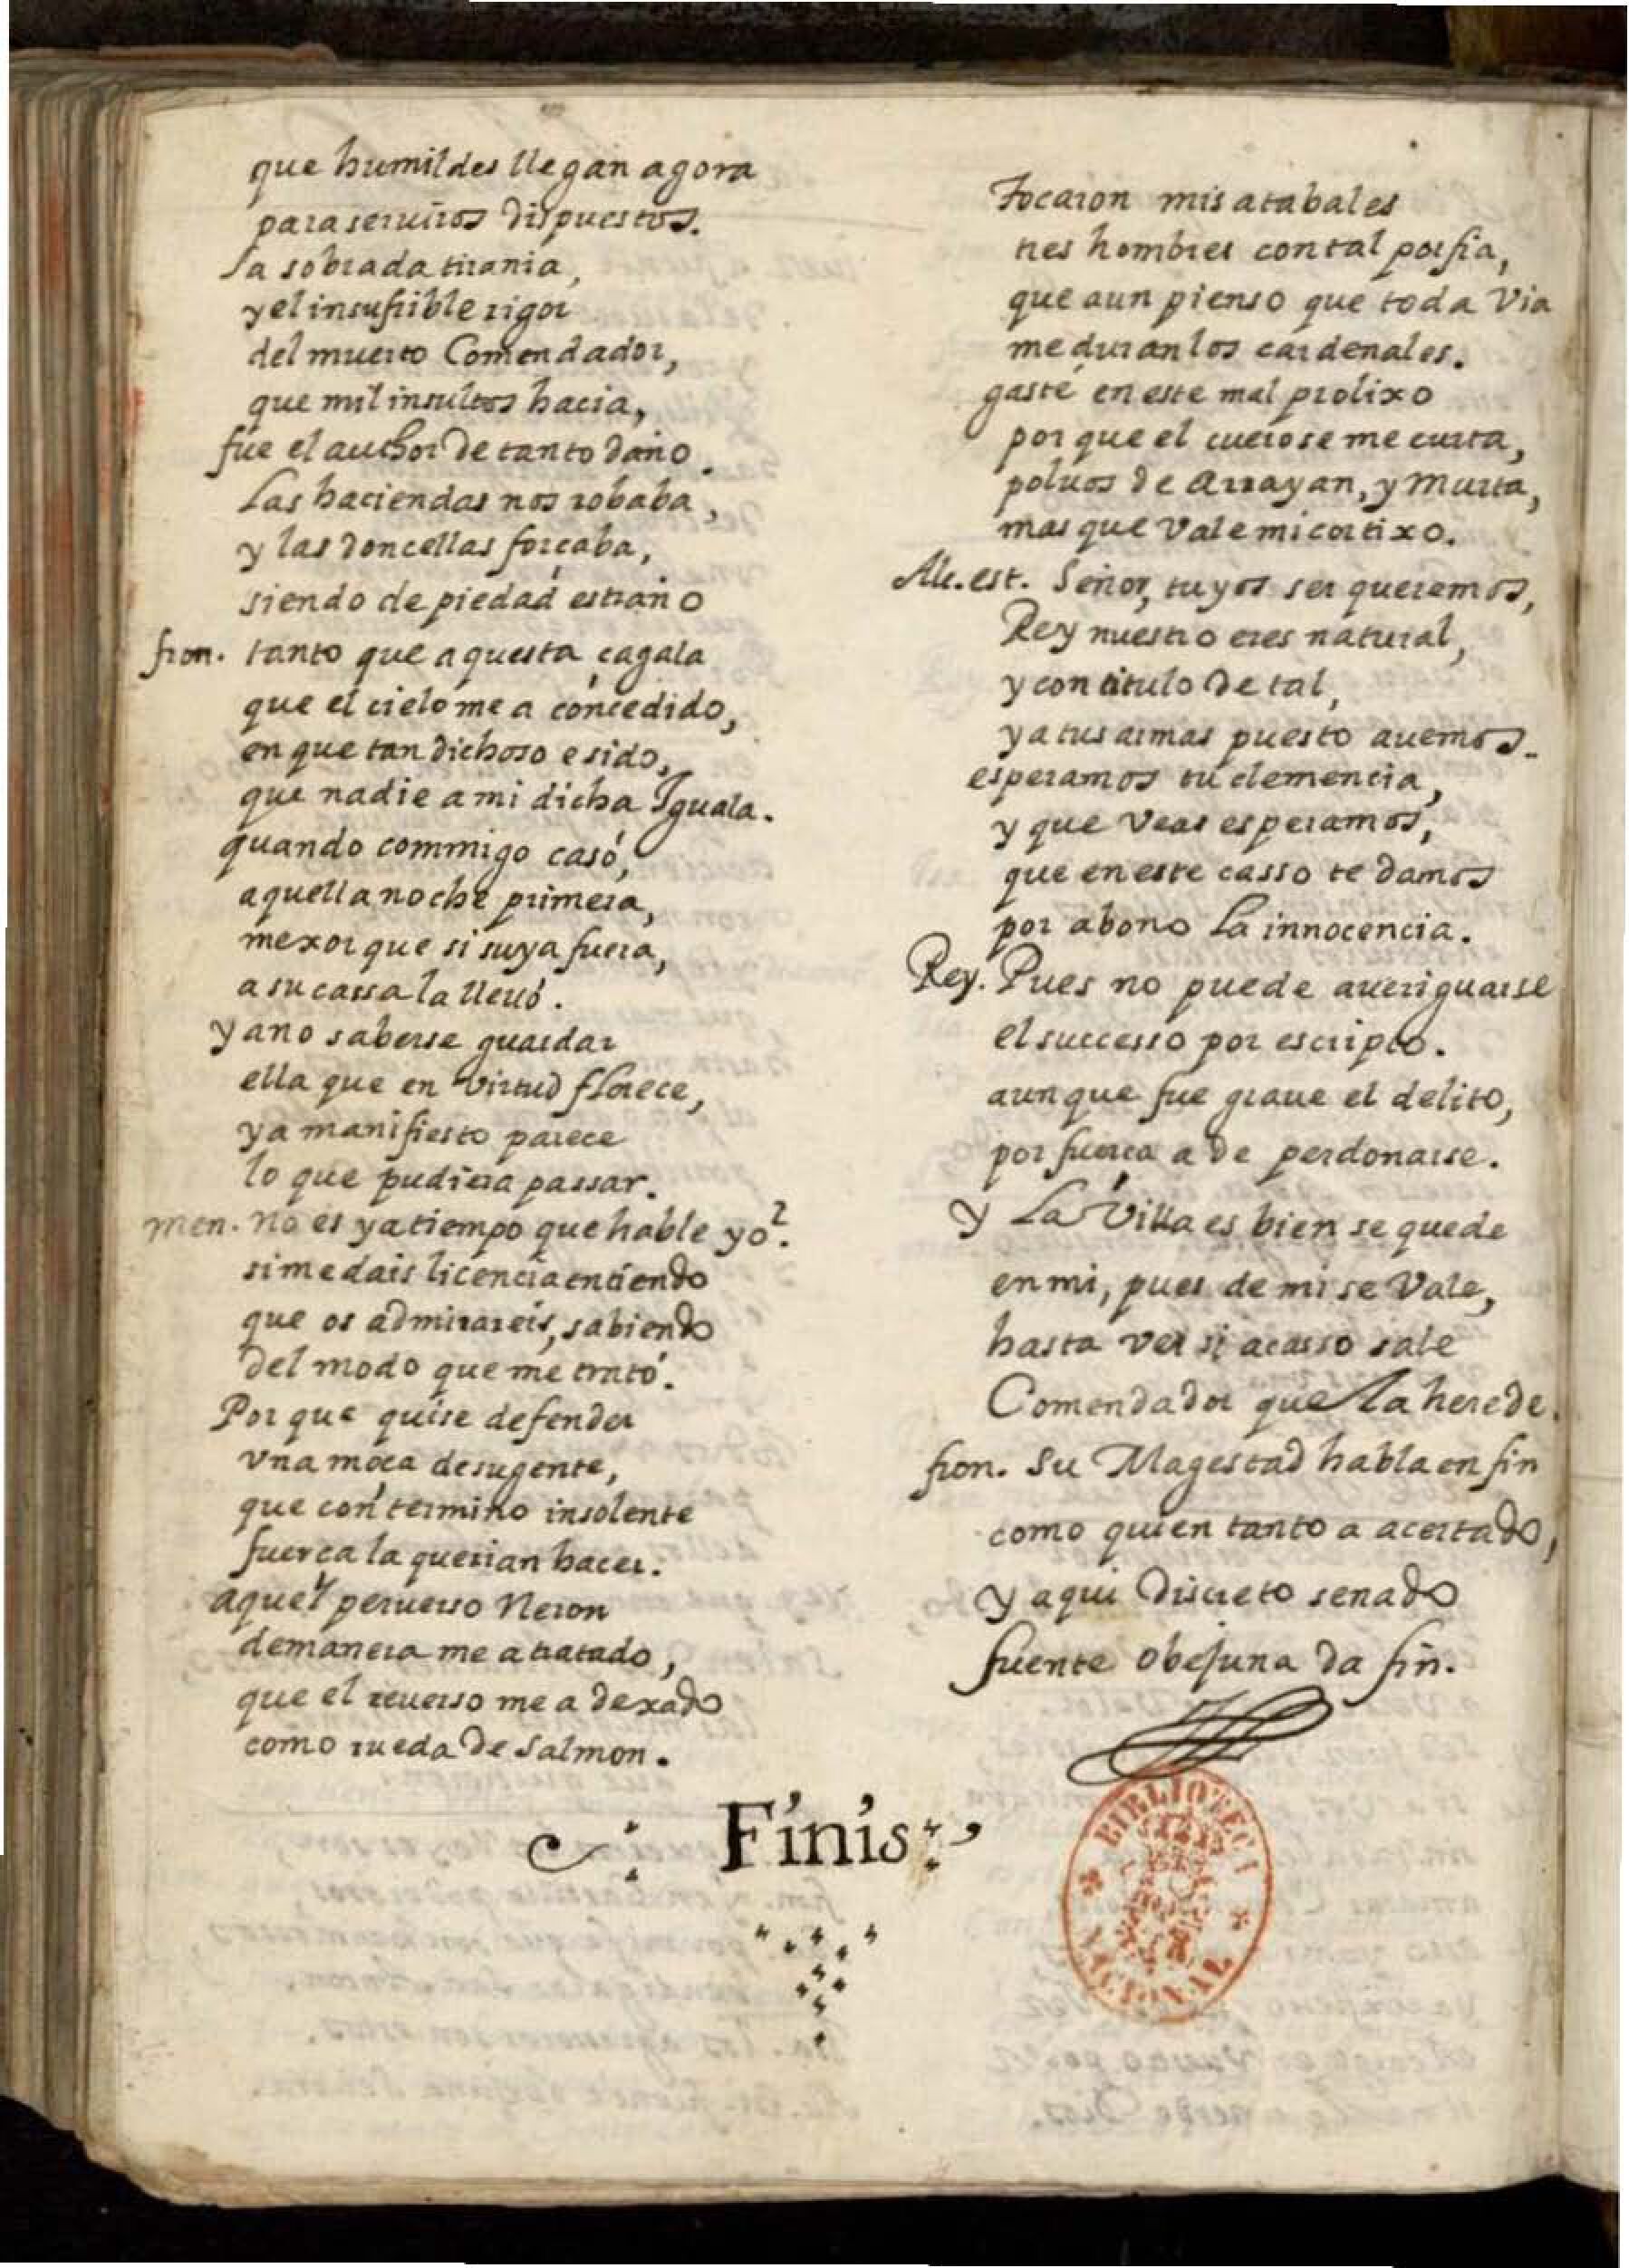 que humildes llegan agora
para seruiros dispuestos.
La sobrada tirania,
y el insufrible rigor
del muerto Comendador,
que mil insultos hacia,
fue el author de tanto daño.
Las haciendas nos robaba,
y las doncellas forçaba,
siendo de piedad estraño
fron. tanto que aquesta çagala
que el cielo me a concedido,
en que tan dichoso e sido,
que nadie a mi dicha Iguala.
quando commigo casó,
aquella noche primera,
mexor que si suya fuera,
a su cassa la lleuó.
y a no saberse guardar
ella que en virtud florece,
ya manifiesto parece
lo que pudiera passar.
men. No es ya tiempo que hable yo?
si me dais licencia entiendo
que os admirareis, sabiendo
del modo que me trató.
Por que quise defender
vna moça de su gente,
que con termino insolente
fuerça la querian hacer.
aquel peruerso Neron
de manera me a tratado,
que el reuerso me a dexado
como rueda de salmon.
Tocaron mis atabales
tres hombres con tal porfia,
que aun pienso que toda Via
me duran los cardenales.
gasté en este mal prolixo
por que el cuero se me curta,
poluos de Arrayan, y Murta,
mas que Vale mi cortixo.
Alc. est. Señor, tuyos ser queremos,
Rey nuestro eres natural,
y con titulo de tal,
ya tus armas puesto auemos.
esperamos tu clemencia,
y que veas esperamos,
que en este casso te damos
por abono La innocencia.
Rey. Pues no puede aueriguarse
el successo por escripto.
aunque fue graue el delito,
por fuerça a de perdonarse.
Y La Villa es bien se quede
en mi, pues de mi se Vale,
hasta ver si acasso sale
Comendador que la herede.
fron. Su Magestad habla en fin
como quien tanto a acertado,
y aqui Discreto senado
fuente Obejuna da fin.
Finis
BIBLIOTECA
NACIONAL